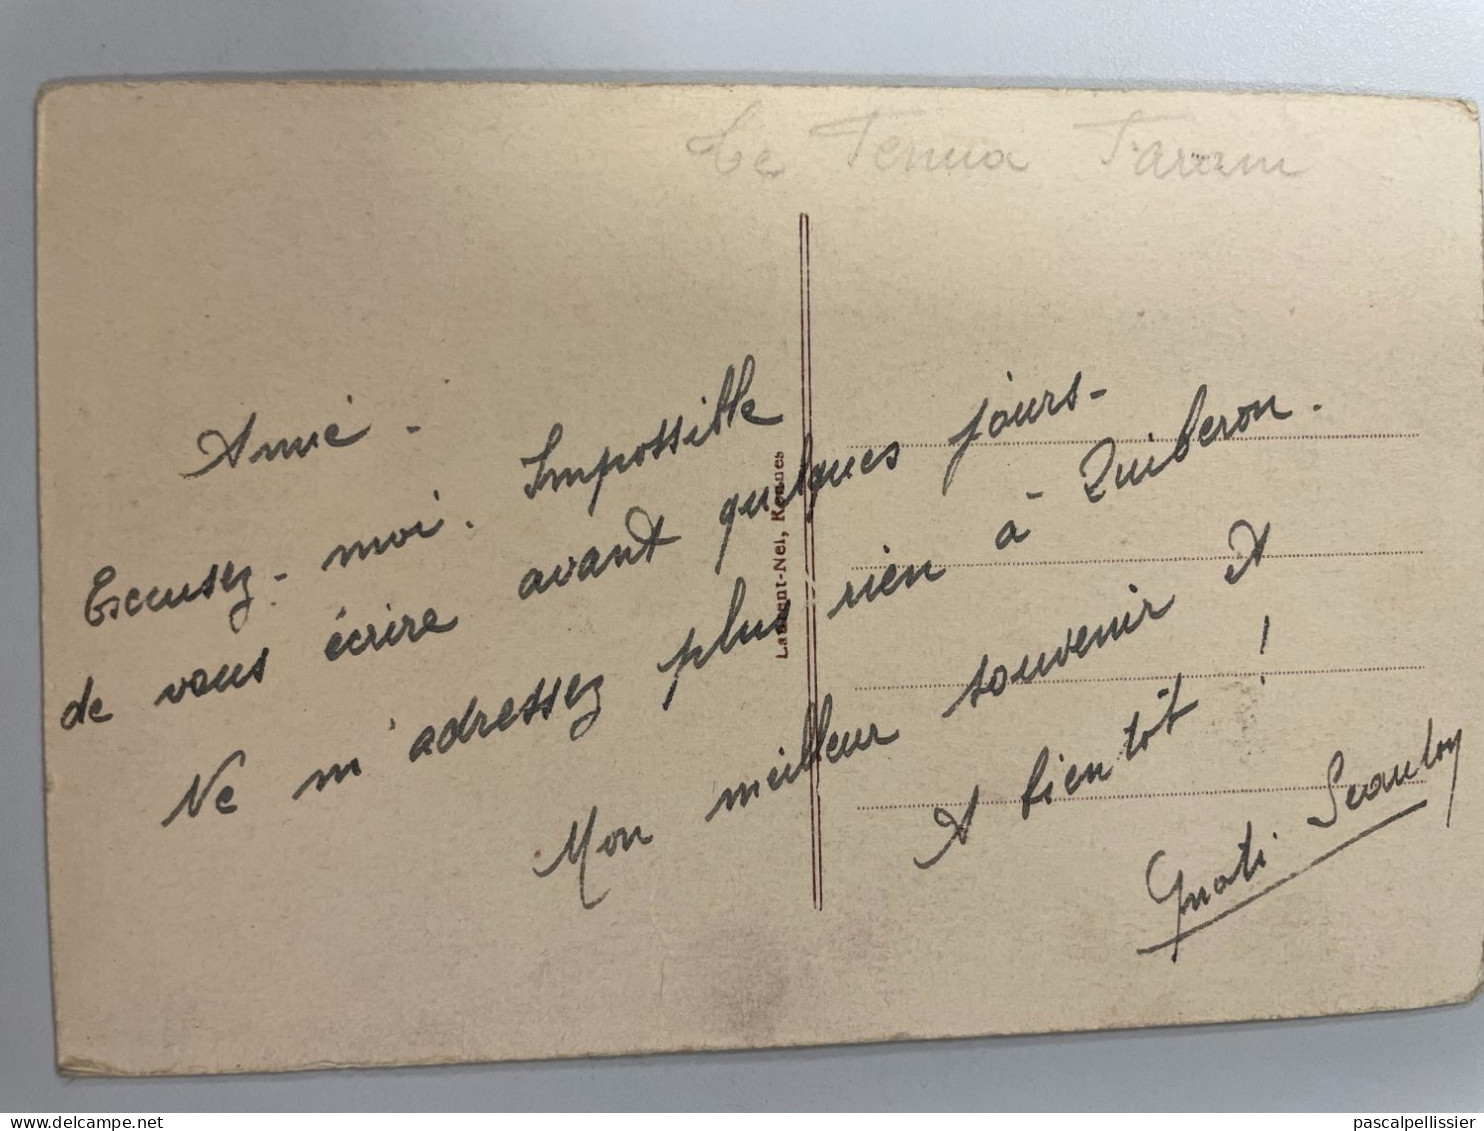 Tenua
Amie.
Excusez-moi. Impossible
de vous écrire avant quelques jours-
Ne m'adressez plus rien à Quiberon.
Mon meilleur souvenir et
A bientôt !
Laurent-Nel, Rennes
pascalpellissier